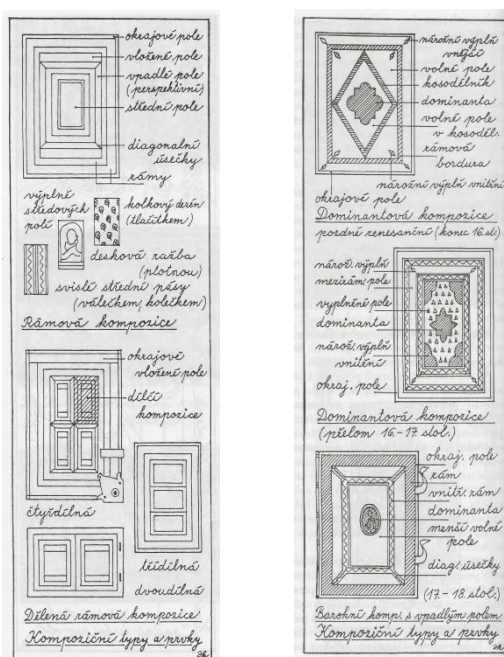 okrajové pole
vložené pole
vpadlé pole
(perspektivní)
střední pole
diagonální
úsečky
rámy
výplně
středových
polí
kolkový dezén
(tlačítkem)
desková ražba
(plotnou)
svislé střední pásy
(válečkem, kolečkem)
Rámová kompozice
okrajové
vložené pole
dílčí
kompozice
čtyřdílná
třídílná
dvoudílná
Dělená rámová kompozice
Kompoziční typy a prvky
nárožní výplň
vnější
volné pole
kosodélník
dominanta
volné pole
v kosoděl.
rámová
bordura
nárožní výplň vnitřní
okrajové pole
Dominantová kompozice
pozdně renesanční (konec 16.st.)
nárož. výplň
mezirám. pole
vyplněné pole
dominanta
nárož. výplň
vnitřní
okraj. pole
Dominantová kompozice
(přelom 16.-17. stol.)
okraj. pole
rám
vnitř. rám
dominanta
menší volné
pole
diag. úsečky
(17.-18 stol.)
Barokní komp. s vpadlým polem
Kompoziční typy a prvky